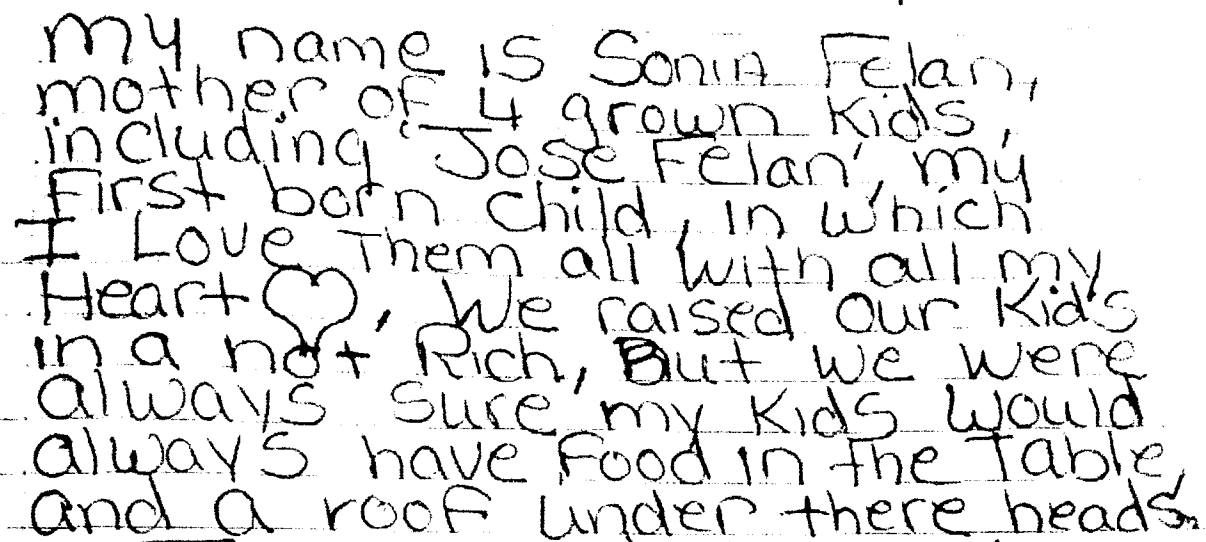 my name is Sonia Felan,
mother of 4 grown Kids,
including 'Jose Felan', my
First born child, in which
I Love Them all with all my
Heart ♡, We raised our Kids
in a not Rich, But we were
always sure my Kids would
always have food in the Table,
and a roof under there heads.